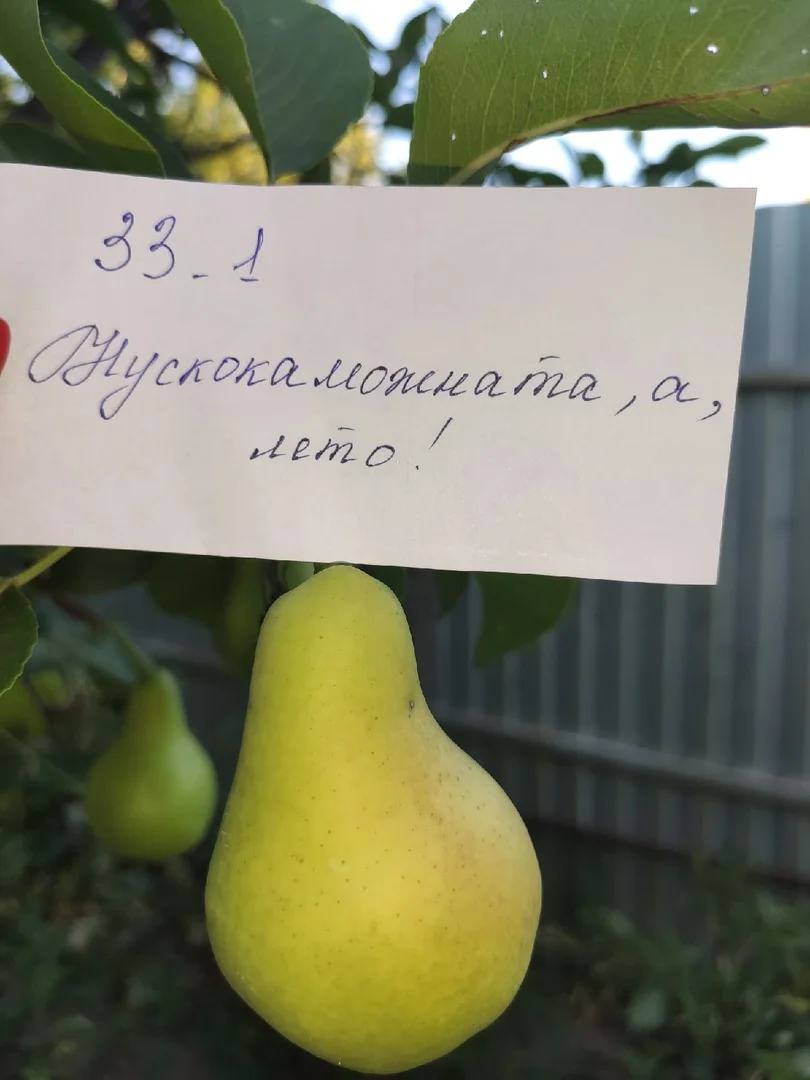 33-1
Нускокаможната, а,
лето!